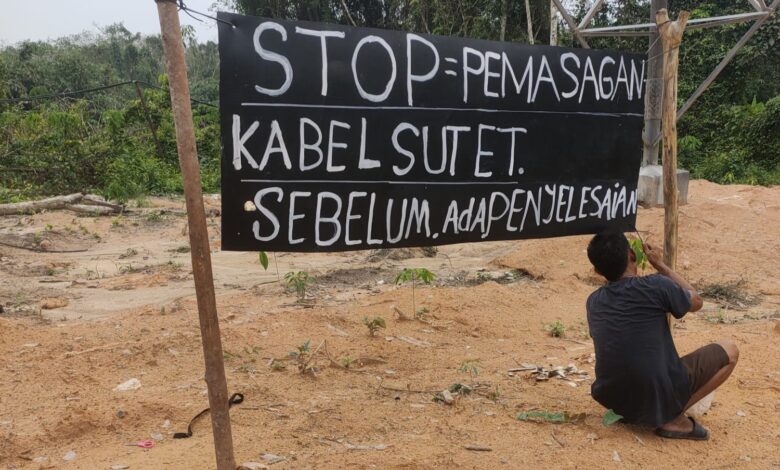 STOP=PEMASAGAN
KABEL SUTET.
SEBELUM. AdA PENYELESAiAN